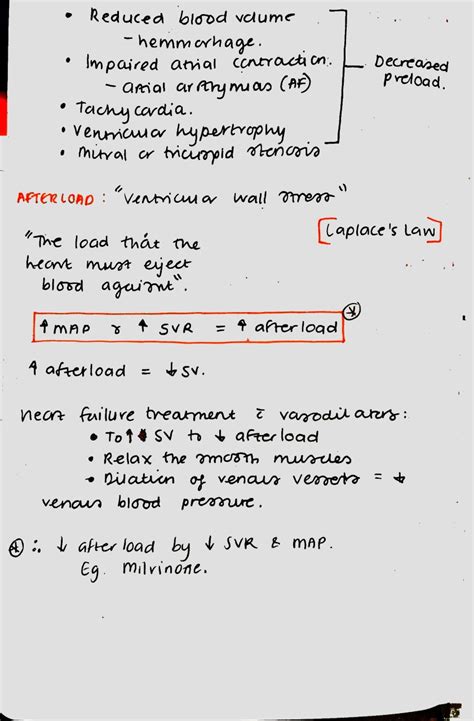 • Reduced blood volume
- hemmorhage.
• Impaired atrial contraction.
- atrial arrhymias (AF)
• Tachycardia.
• Ventricular hypertrophy
• mitral or tricuspid stenosis
Decreased
preload.
AFTERLOAD : "ventricular wall stress"
[Laplace's Law]
"The load that the
heart must eject
blood against".
↑ MAP & ↑ SVR = ↑ afterload
↑ afterload = ↓ SV.
Heart failure treatment c̄ vasodilators:
• To ↑ SV to ↓ afterload
• Relax the smooth muscles
• Dilation of venous vessels = ↓
venous blood pressure.
* ∴ ↓ afterload by ↓ SVR & MAP.
Eg. Milrinone.